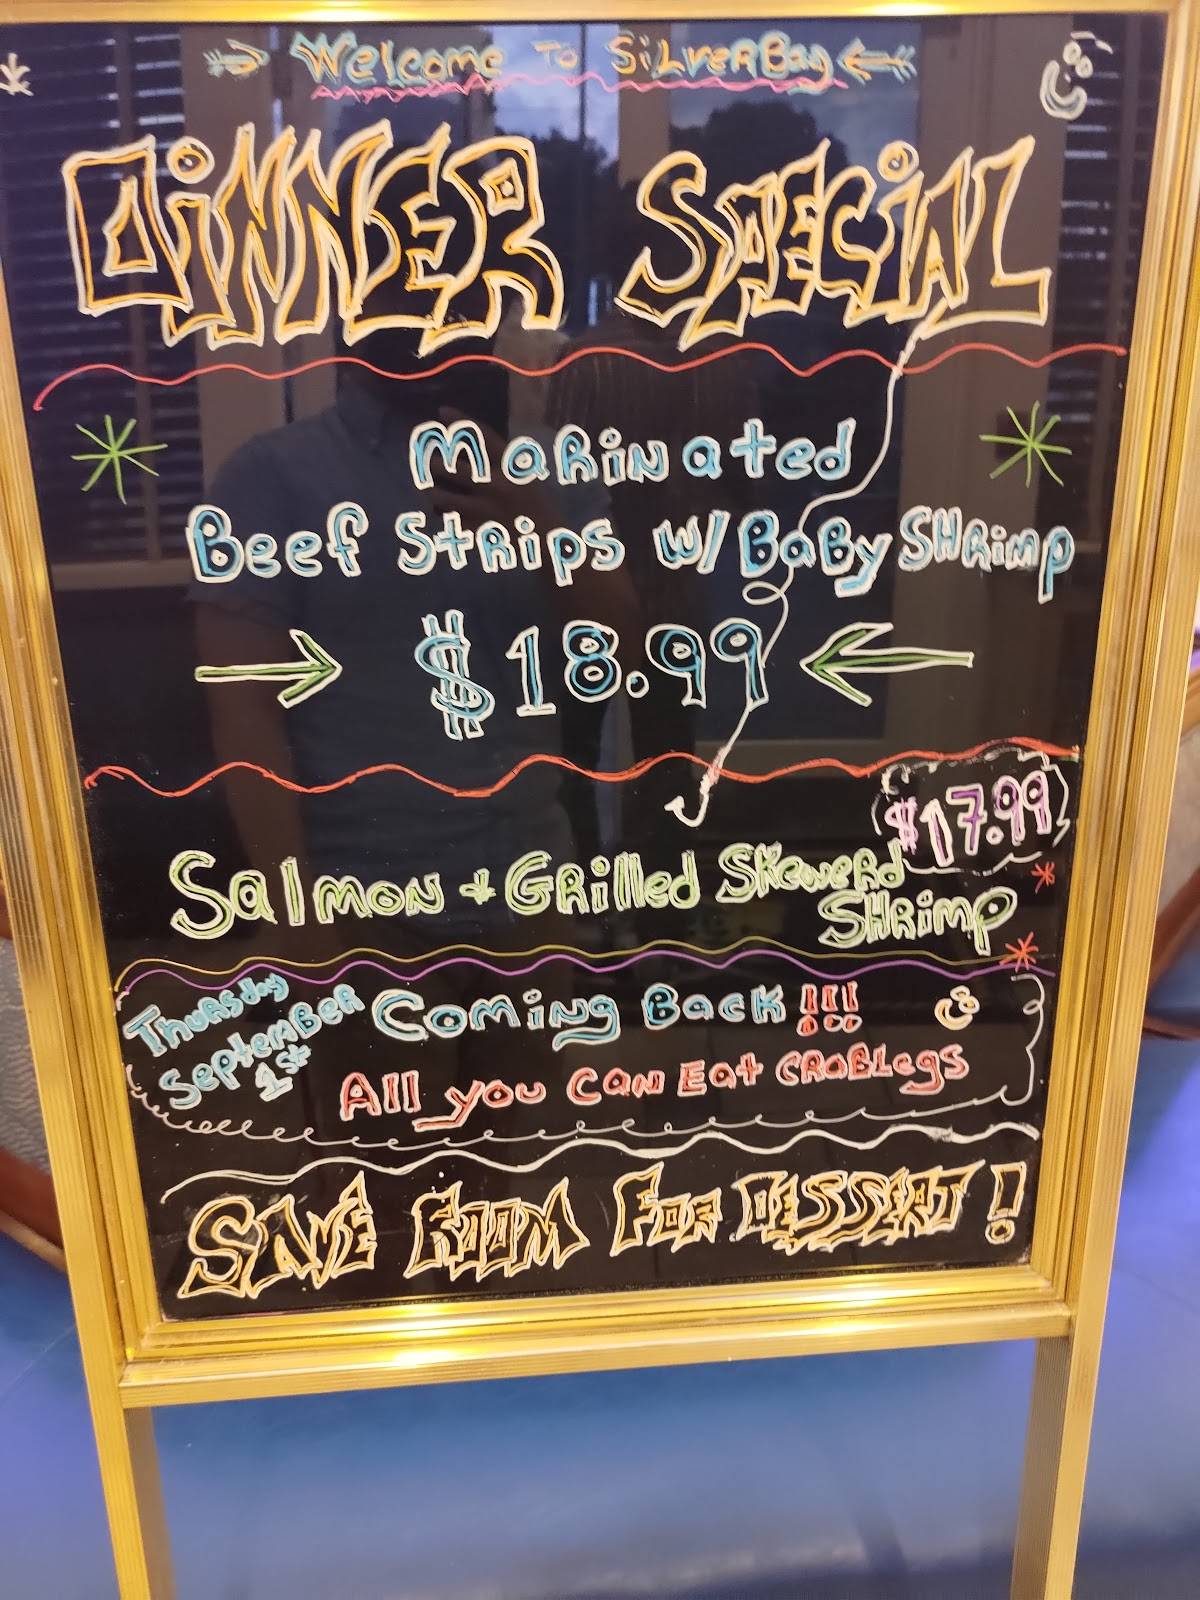 Welcome To SilverBay
Dinner Special
Marinated
Beef Strips w/ Baby Shrimp
$18.99
$17.99
Salmon + Grilled Skewerd
Shrimp
Thursday
September
1st
Coming Back!!!
All you can Eat crablegs
Save Room For Dessert!